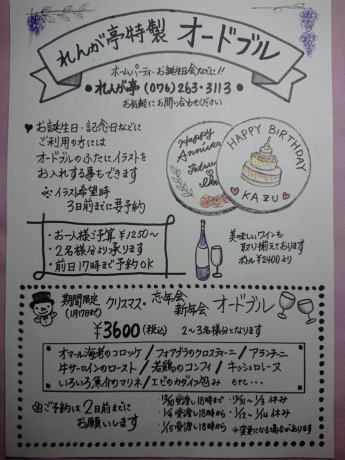 れんが亭特製 オードブル
ホームパーティ・お誕生日会などに!!
・れんが亭 (076)263-3113・
お気軽にお問い合わせください
♥お誕生日・記念日などに
ご利用の方には
オードブルのふたにイラストを
お入れする事もできます
※イラスト希望時
3日前までに要予約
Happy
Anniver
HAPPY BIRTHDAY
♡ KAZU ♡
・お一人様ご予算 ¥1250〜
・2名様分より承ります
・前日17時まで予約OK
美味しいワインも
取り揃えております
ボトル¥2400より
期間限定
(1月17日まで)
クリスマス・忘年会
新年会 オードブル
¥3600(税込) 2〜3名様分となります
オマール海老のコロッケ/フォアグラのクロスティーニ/アランチーニ
牛サーロインのロースト/若鶏のコンフィ/キッシュロレーヌ
いろいろ魚介のマリネ/エビのカダイフ包み etc...
ご予約は2日前までに
お願いします
12/30受渡し18時から → 12/31〜1/3休み
1/4受渡し18時から
1/5受渡し18時から
※変更になる場合があります